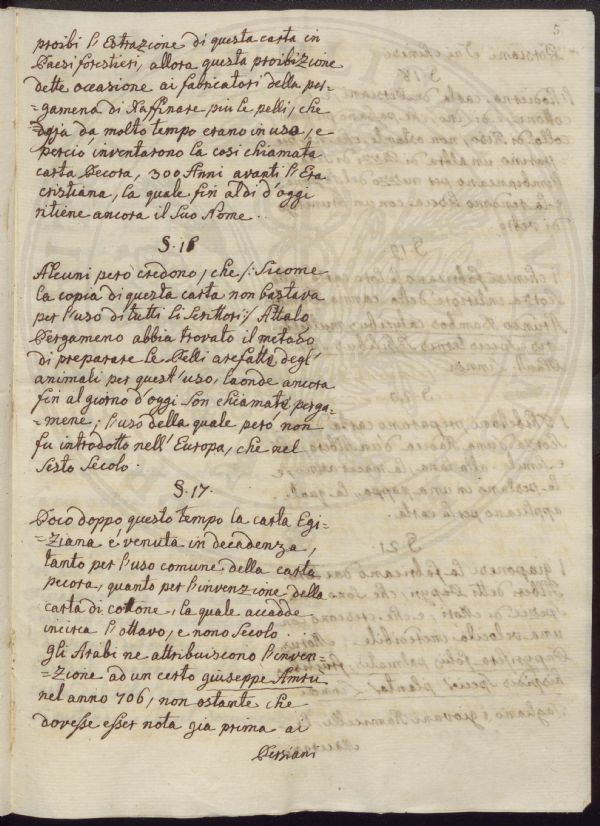 5
proibì l'Estrazione di questa carta in
Paesi forestieri, allora questa proibizione
dette occasione ai fabricatori della per-
=gamena di Raffinare piu le pelli, che
Ogia da molto tempo erano in uso, e
perciò inventarono la così chiamata
carta Pecora, 300 Anni avanti l'Era
cristiana, la quale fin al dì d'oggi
ritiene ancora il suo Nome.
§. 16
Alcuni però credono, che /: Sicome
la copia di questa carta non bastava
per l'uso di tutti li Scrittori :/ Attalo
Pergameno abbia trovato il metodo
di preparare le Pelli arefatte degl'
animali per quest'uso, laonde ancora
fin al giorno d'oggi son chiamate perga-
=mene; l'uso della quale però non
fu introdotto nell'Europa, che nel
Sesto Secolo.
§. 17.
Poco doppo questo tempo la carta Egi-
=Ziana é venuta in decadenza,
tanto per l'uso comune della carta
pecora, quanto per l'invenzione della
carta di cottone, la quale accadde
incirca l'ottavo, e nono Secolo.
gli Arabi ne attribuiscono l'inven-
=Zione ad un certo giuseppe Amru
nel anno 706, non ostante che
dovesse esser nota gia prima ai
Persiani